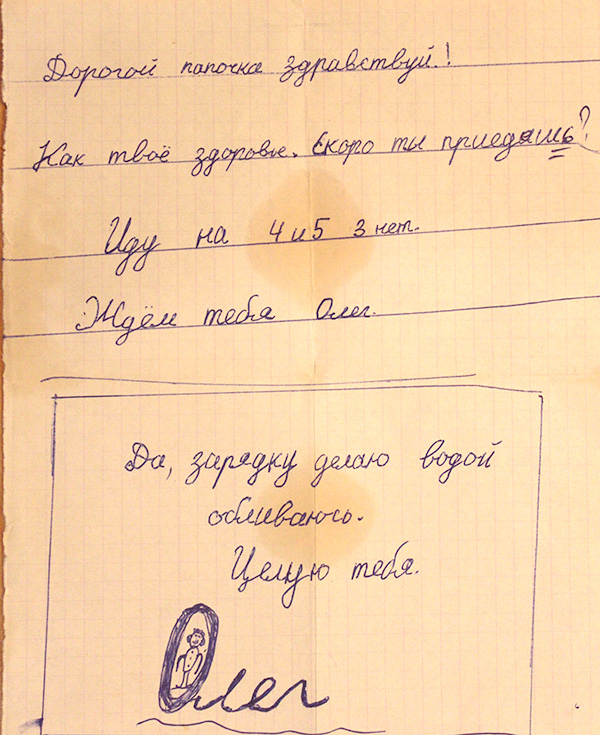 Дорогой папочка здравствуй.!
Как твоё здоровье. Скоро ты приедешь?
Иду на 4 и 5 3 нет.
Ждём тебя Олег.
Да, зарядку делаю водой
обливаюсь.
Целую тебя.
Олег